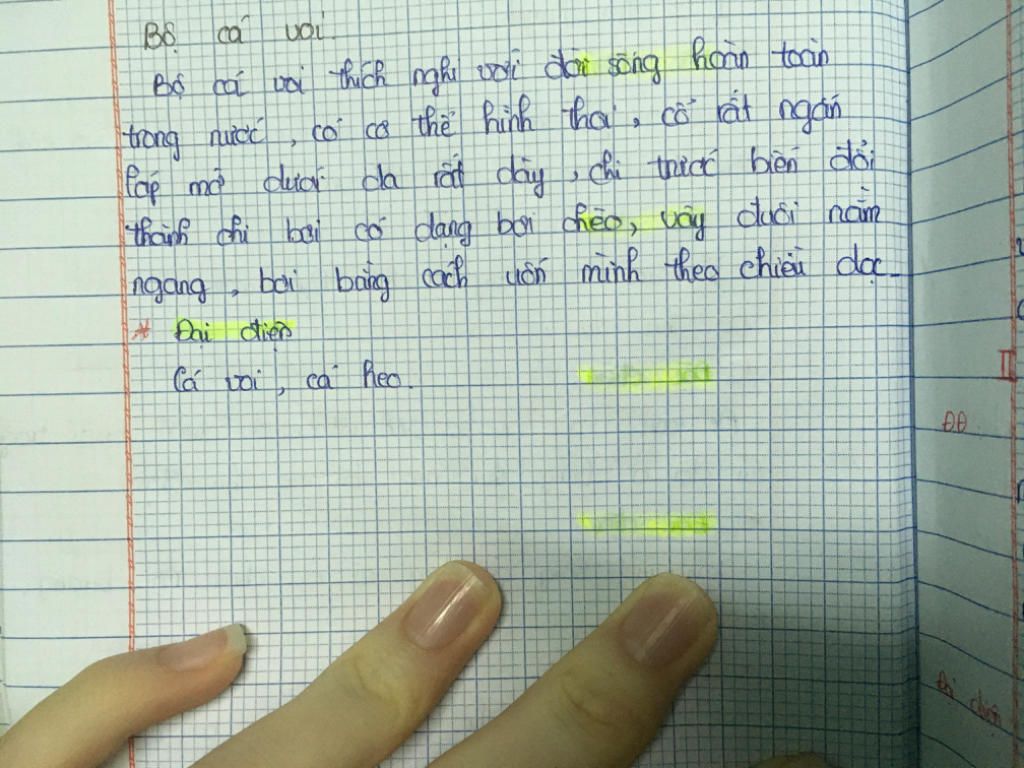 Bộ cá voi.
Bộ cá voi thích nghi với đời sống hoàn toàn
trong nước, có cơ thể hình thoi, cổ rất ngắn
lớp mỡ dưới da rất dày, chi trước biến đổi
thành chi bơi có dạng bơi chèo, vây đuôi nằm
ngang, bơi bằng cách uốn mình theo chiều dọc.
* Đại diện
Cá voi, cá heo.
II
ĐĐ